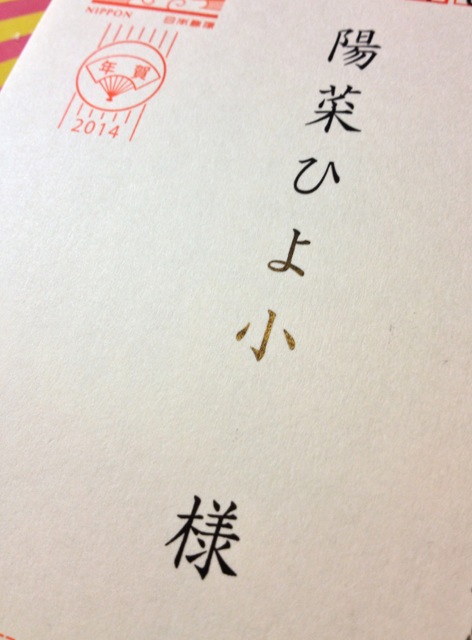 NIPPON 日本郵便
年賀
2014
陽菜ひよ小
様